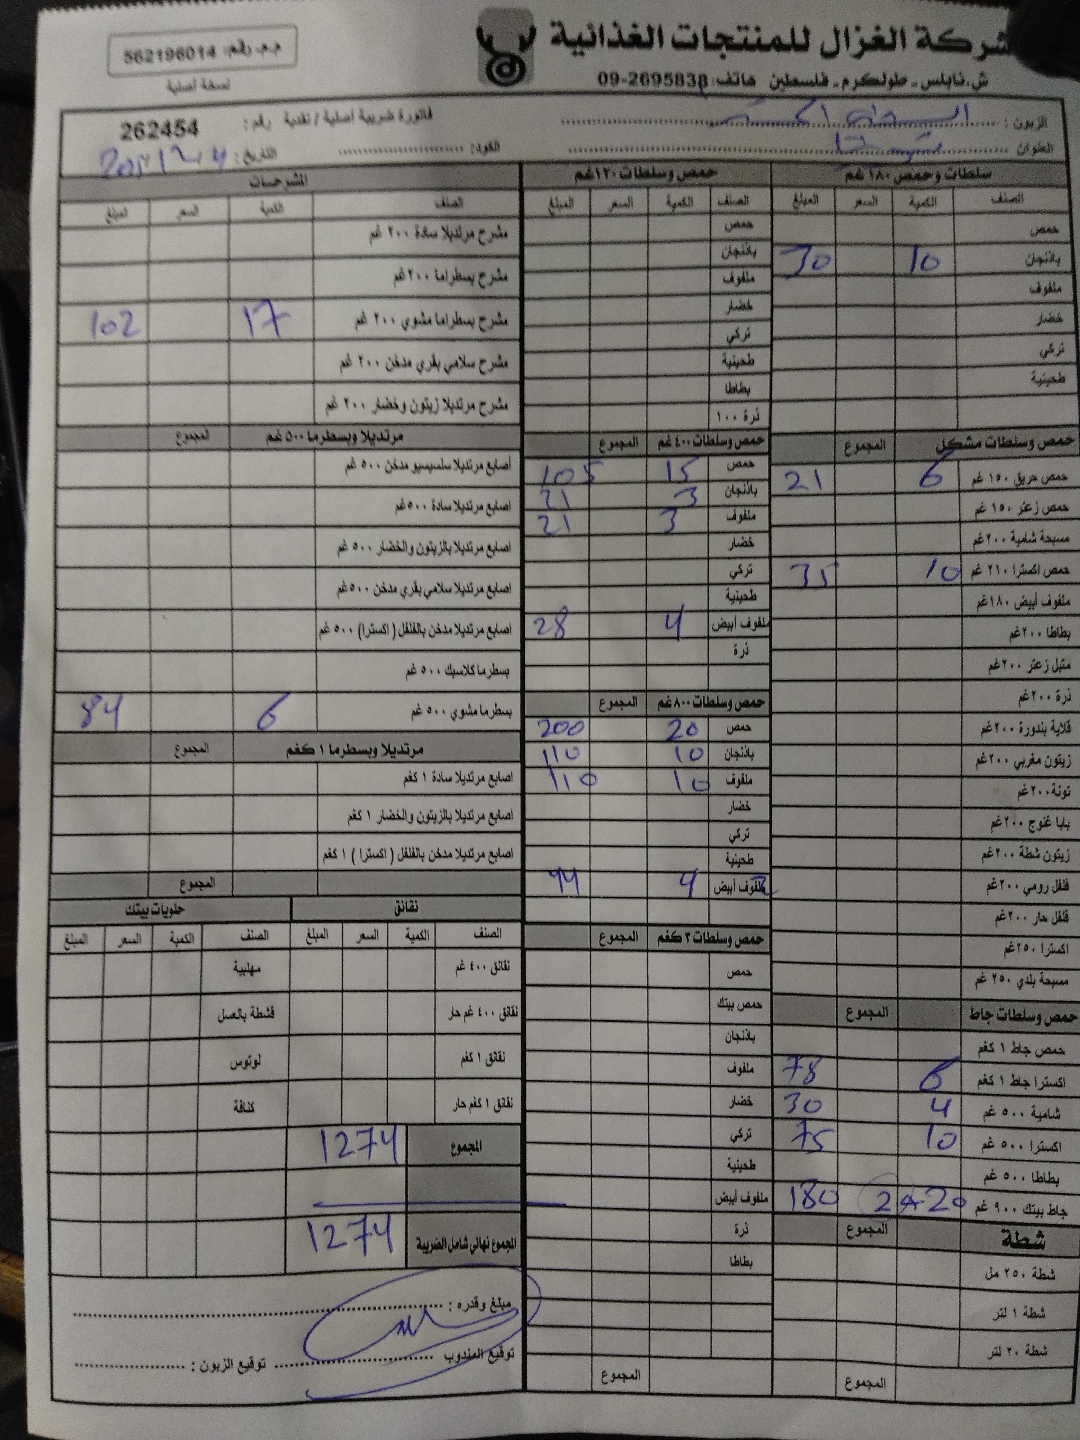 شركة الغزال للمنتجات الغذائية
ش. نابلس - طولكرم - فلسطين هاتف: 09-2695838
م.م. رقم: 562196014
نسخة أصلية
الزبون :
العنوان
فاتورة ضريبية أصلية / نقدية رقم: 262454
الكود: التاريخ:
سلطات وحمص ١٨٠ غم
الصنف الكمية السعر المبلغ
حمص
باذنجان 10 30
ملفوف
خضار
تركي
طحينية
حمص وسلطات مشكل المجموع
حمص حريق ١٥٠ غم 6 21
حمص زعتر ١٥٠ غم
مسبحة شامية ٢٠٠غم
حمص اكسترا ٢١٠ غم 10 35
ملفوف أبيض ١٨٠غم
بطاطا ٢٠٠غم
متبل زعتر ٢٠٠غم
ذرة ٢٠٠غم
قلاية بندورة ٢٠٠غم
زيتون مغربي ٢٠٠غم
تونة ٢٠٠غم
بابا غنوج ٢٠٠غم
زيتون شطة ٢٠٠غم
فلفل رومي ٢٠٠غم
فلفل حار ٢٠٠غم
اكسترا ٢٥٠غم
مسبحة بلدي ٢٥٠ غم
حمص وسلطات جاط المجموع
حمص جاط ١ كغم
اكسترا جاط ١ كغم 6 78
شامية ٥٠٠ غم 4 30
اكسترا ٥٠٠ غم 10 75
بطاطا ٥٠٠ غم
جاط بيتك ٩٠٠ غم 20 180
شطة المجموع
شطة ٢٥٠ مل
شطة ١ لتر
شطة ٢٠ لتر
المجموع
حمص وسلطات ١٢٠غم
الصنف الكمية السعر المبلغ
حمص
باذنجان
ملفوف
خضار
تركي
طحينية
بطاطا
ذرة ١٠٠
حمص وسلطات ٤٠٠ غم المجموع
حمص 15 105
باذنجان 3 21
ملفوف 3 21
خضار
تركي
طحينية
ملفوف أبيض 4 28
ذرة
حمص وسلطات ٨٠٠غم المجموع
حمص 20 200
باذنجان 10 110
ملفوف 10 110
خضار
تركي
طحينية
ملفوف أبيض 4 44
حمص وسلطات ٣ كغم المجموع
حمص
حمص بيتك
باذنجان
ملفوف
خضار
تركي
طحينية
ملفوف أبيض
ذرة
بطاطا
المجموع
المشرحات
الصنف الكمية السعر المبلغ
مشرح مرتديلا سادة ٢٠٠ غم
مشرح بسطراما ٢٠٠ غم
مشرح بسطراما مشوي ٢٠٠ غم 17 102
مشرح سلامي بقري مدخن ٢٠٠ غم
مشرح مرتديلا زيتون وخضار ٢٠٠ غم
مرتديلا وبسطرما ٥٠٠ غم المجموع
أصابع مرتديلا سلسيسيو مدخن ٥٠٠ غم
اصابع مرتديلا سادة ٥٠٠غم
اصابع مرتديلا بالزيتون والخضار ٥٠٠ غم
اصابع مرتديلا سلامي بقري مدخن ٥٠٠غم
اصابع مرتديلا مدخن بالفلفل (اكسترا) ٥٠٠ غم
بسطرما كلاسيك ٥٠٠ غم
بسطرما مشوي ٥٠٠ غم 6 84
مرتديلا وبسطرما ١ كغم المجموع
اصابع مرتديلا سادة ١ كغم
اصابع مرتديلا بالزيتون والخضار ١ كغم
اصابع مرتديلا مدخن بالفلفل (اكسترا) ١ كغم
المجموع
نقانق
الصنف الكمية السعر المبلغ
نقانق ٤٠٠ غم
نقانق ٤٠٠ غم حار
نقانق ١ كغم
نقانق ١ كغم حار
حلويات بيتك
الصنف الكمية السعر المبلغ
مهلبية
قشطة بالعسل
لوتوس
كنافة
المجموع 1274
المجموع نهائي شامل الضريبة 1274
مبلغ وقدره :
توقيع المندوب توقيع الزبون :